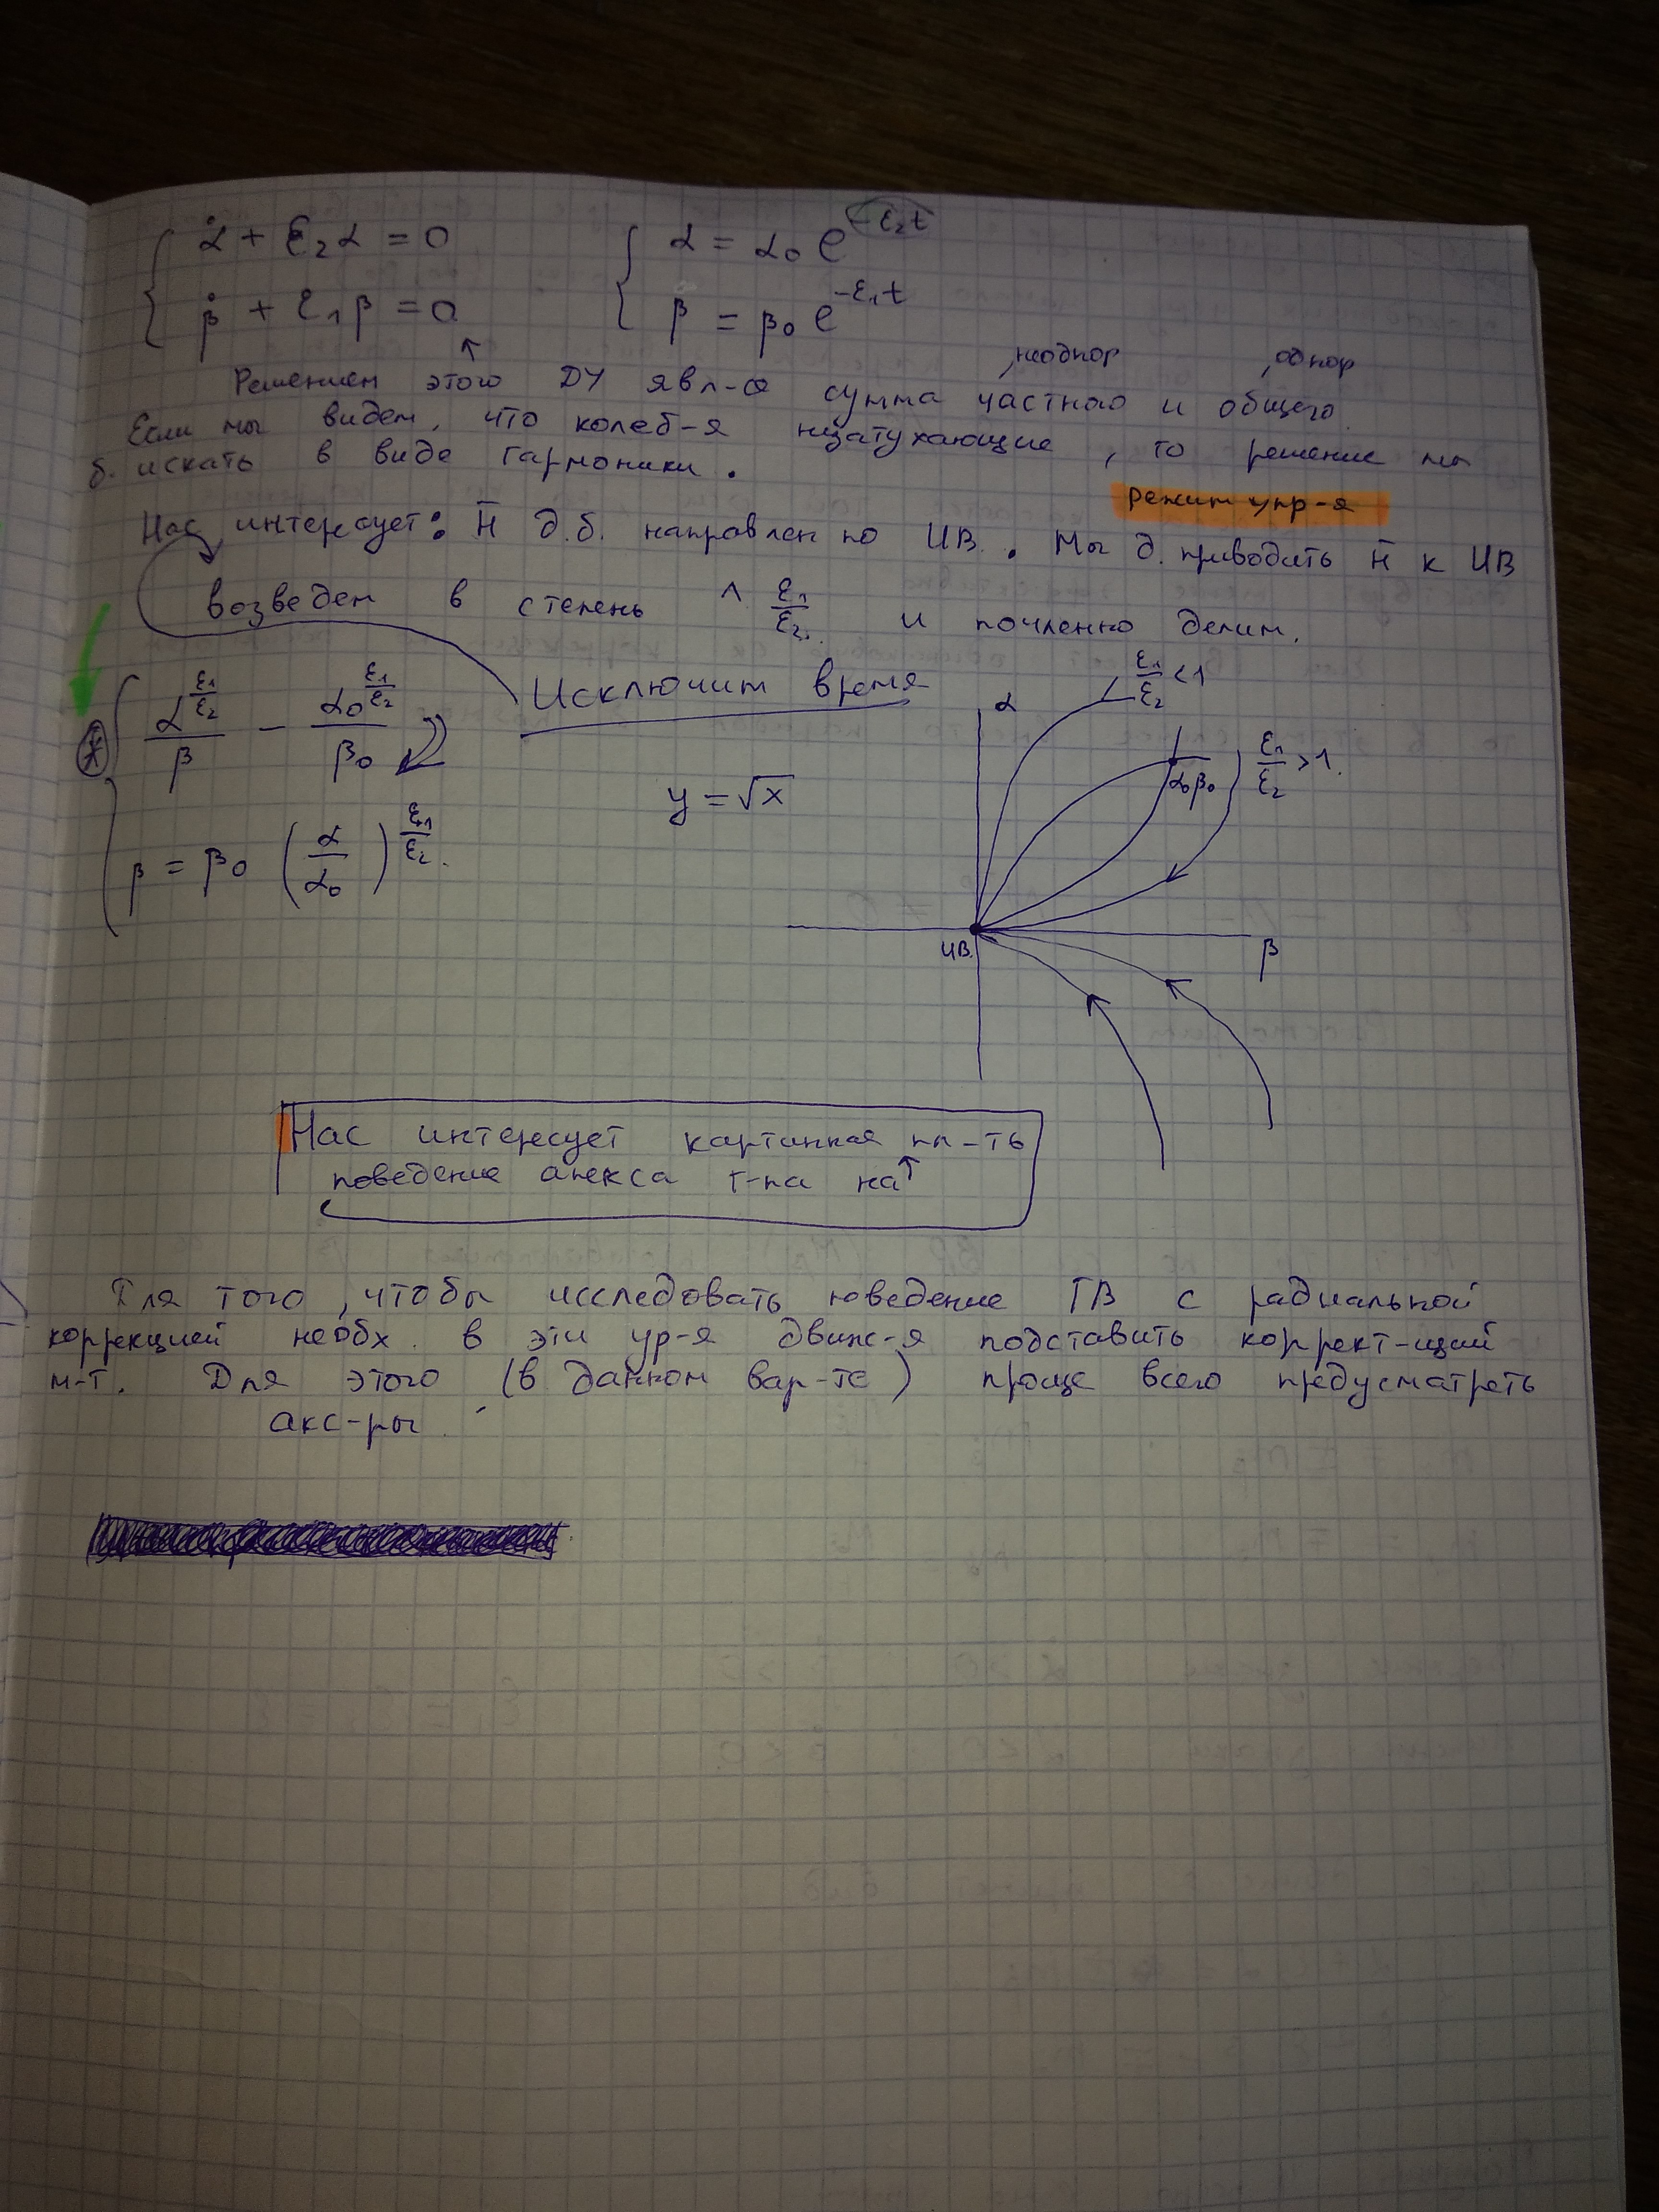 α̇ + ε₂α = 0
β̇ + ε₁β = 0
α = α₀ e^{-ε₂t}
β = β₀ e^{-ε₁t}
, неоднор , однор
Решением этого ДУ явл-ся сумма частного и общего.
Если мы видем, что колеб-я незатухающие, то решение мы
б. искать в виде гармоники.
Режим упр-я
Нас интересует: H̄ д.б. направлен по ИВ. Мы д. приводить H̄ к ИВ
возведем в степень ^ ε₁/ε₂ и почленно делим.
Исключим время
α^{ε₁/ε₂}/β – α₀^{ε₁/ε₂}/β₀
*
β = β₀ (α/α₀)^{ε₁/ε₂}.
y = √x
α
ε₁/ε₂ < 1
ε₁/ε₂ > 1.
α₀β₀
ИВ.
β
Нас интересует картинная пл-ть
поведение апекса г-па на ↑
Для того, чтобы исследовать поведение ГВ с радиальной
коррекцией необх. в эти ур-я движ-я подставить коррект-щий
м-т. Для этого (в данном вар-те) проще всего предусматреть
акс-ры